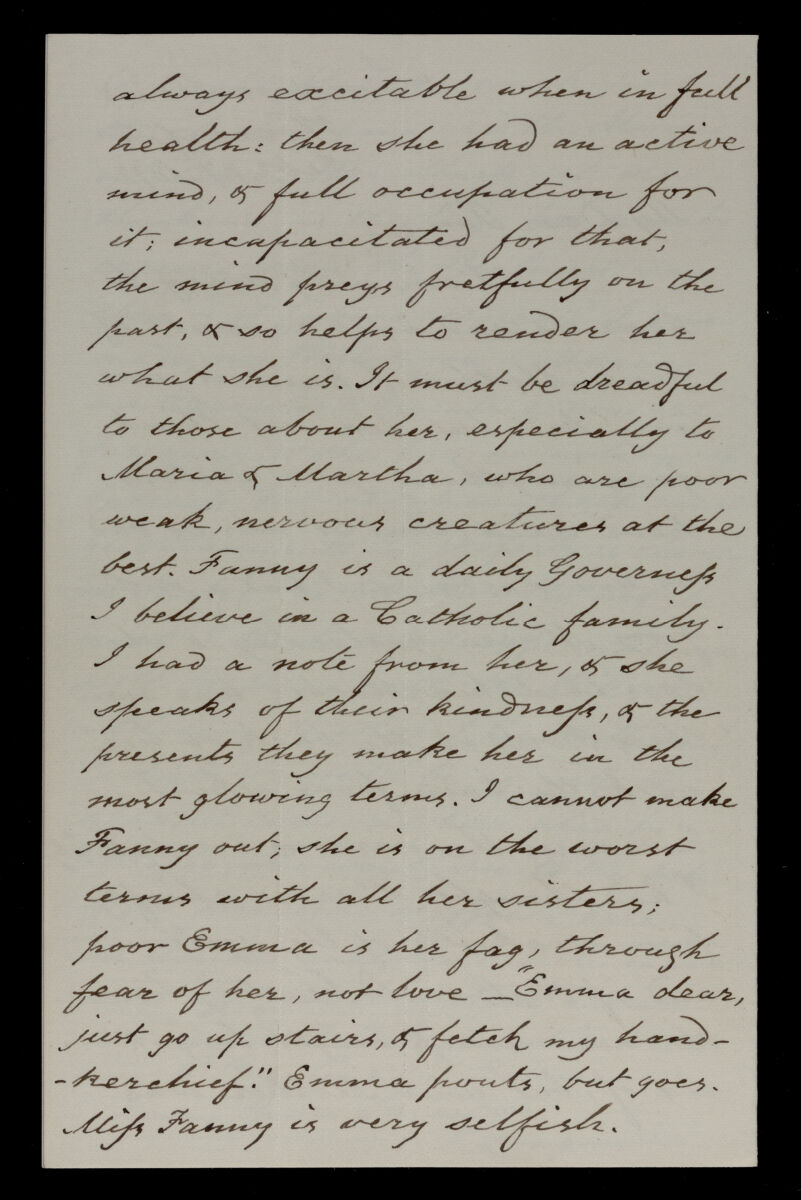 always excitable when in full
health: then she had an active
mind, & full occupation for
it; incapacitated for that,
the mind preys fretfully on the
past, & so helps to render her
what she is. It must be dreadful
to those about her, especially to
Maria & Martha, who are poor
weak, nervous creatures at the
best. Fanny is a daily Governess
I believe in a Catholic family.
I had a note from her, & she
speaks of their kindness, & the
presents they make her in the
most glowing terms. I cannot make
Fanny out; she is on the worst
terms with all her sisters;
poor Emma is her fag, through
fear of her, not love — "Emma dear,
just go up stairs, & fetch my hand-
-kerchief." Emma pouts, but goes.
Miss Fanny is very selfish.